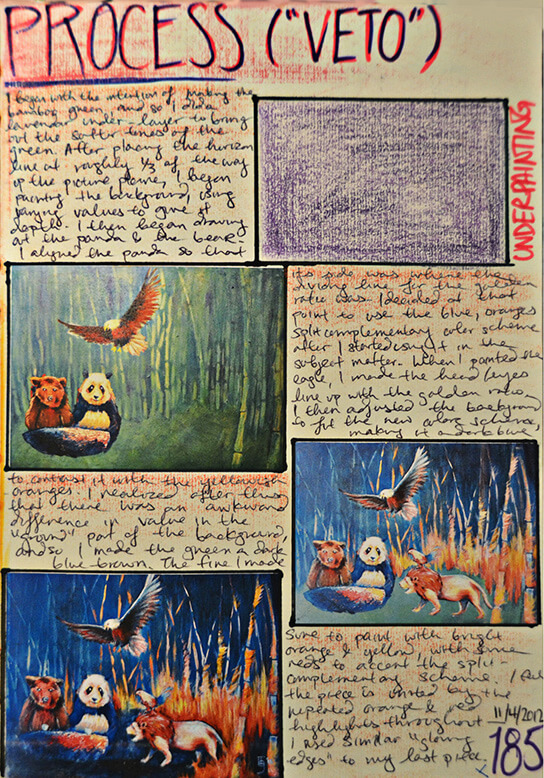 PROCESS ("VETO")
I began with the intention of making the
bamboo green and so I did a
lavender under-layer to bring
out the softer tones of the
green. After placing the horizon
line at roughly 1/3 of the way
up the picture plane, I began
painting the background, using
varying values to give it
depth. I then began drawing
at the panda & the bear.
I aligned the panda so that
UNDERPAINTING
its side was where the
dividing line for the golden
ratio was. I decided at that
point to use the blue, oranges
split complementary color scheme
after I started using it in the
subject matter. When I painted the
eagle, I made the head/eyes
line up with the golden ratio.
I then adjusted the background
to fit the new color scheme,
making it a dark blue
to contrast it with the yellowish
oranges. I realized after this
that there was an awkward
difference in value in the
"ground" part of the background,
and so I made the green a dark
blue brown. The fire I made
sure to paint with bright
orange & yellow, with some
reds to accent the split-
complementary scheme. I feel
the piece is united by the
repeated orange & red
highlights throughout
I used similar "glowing
edges" to my last piece.
11/4/2012
185